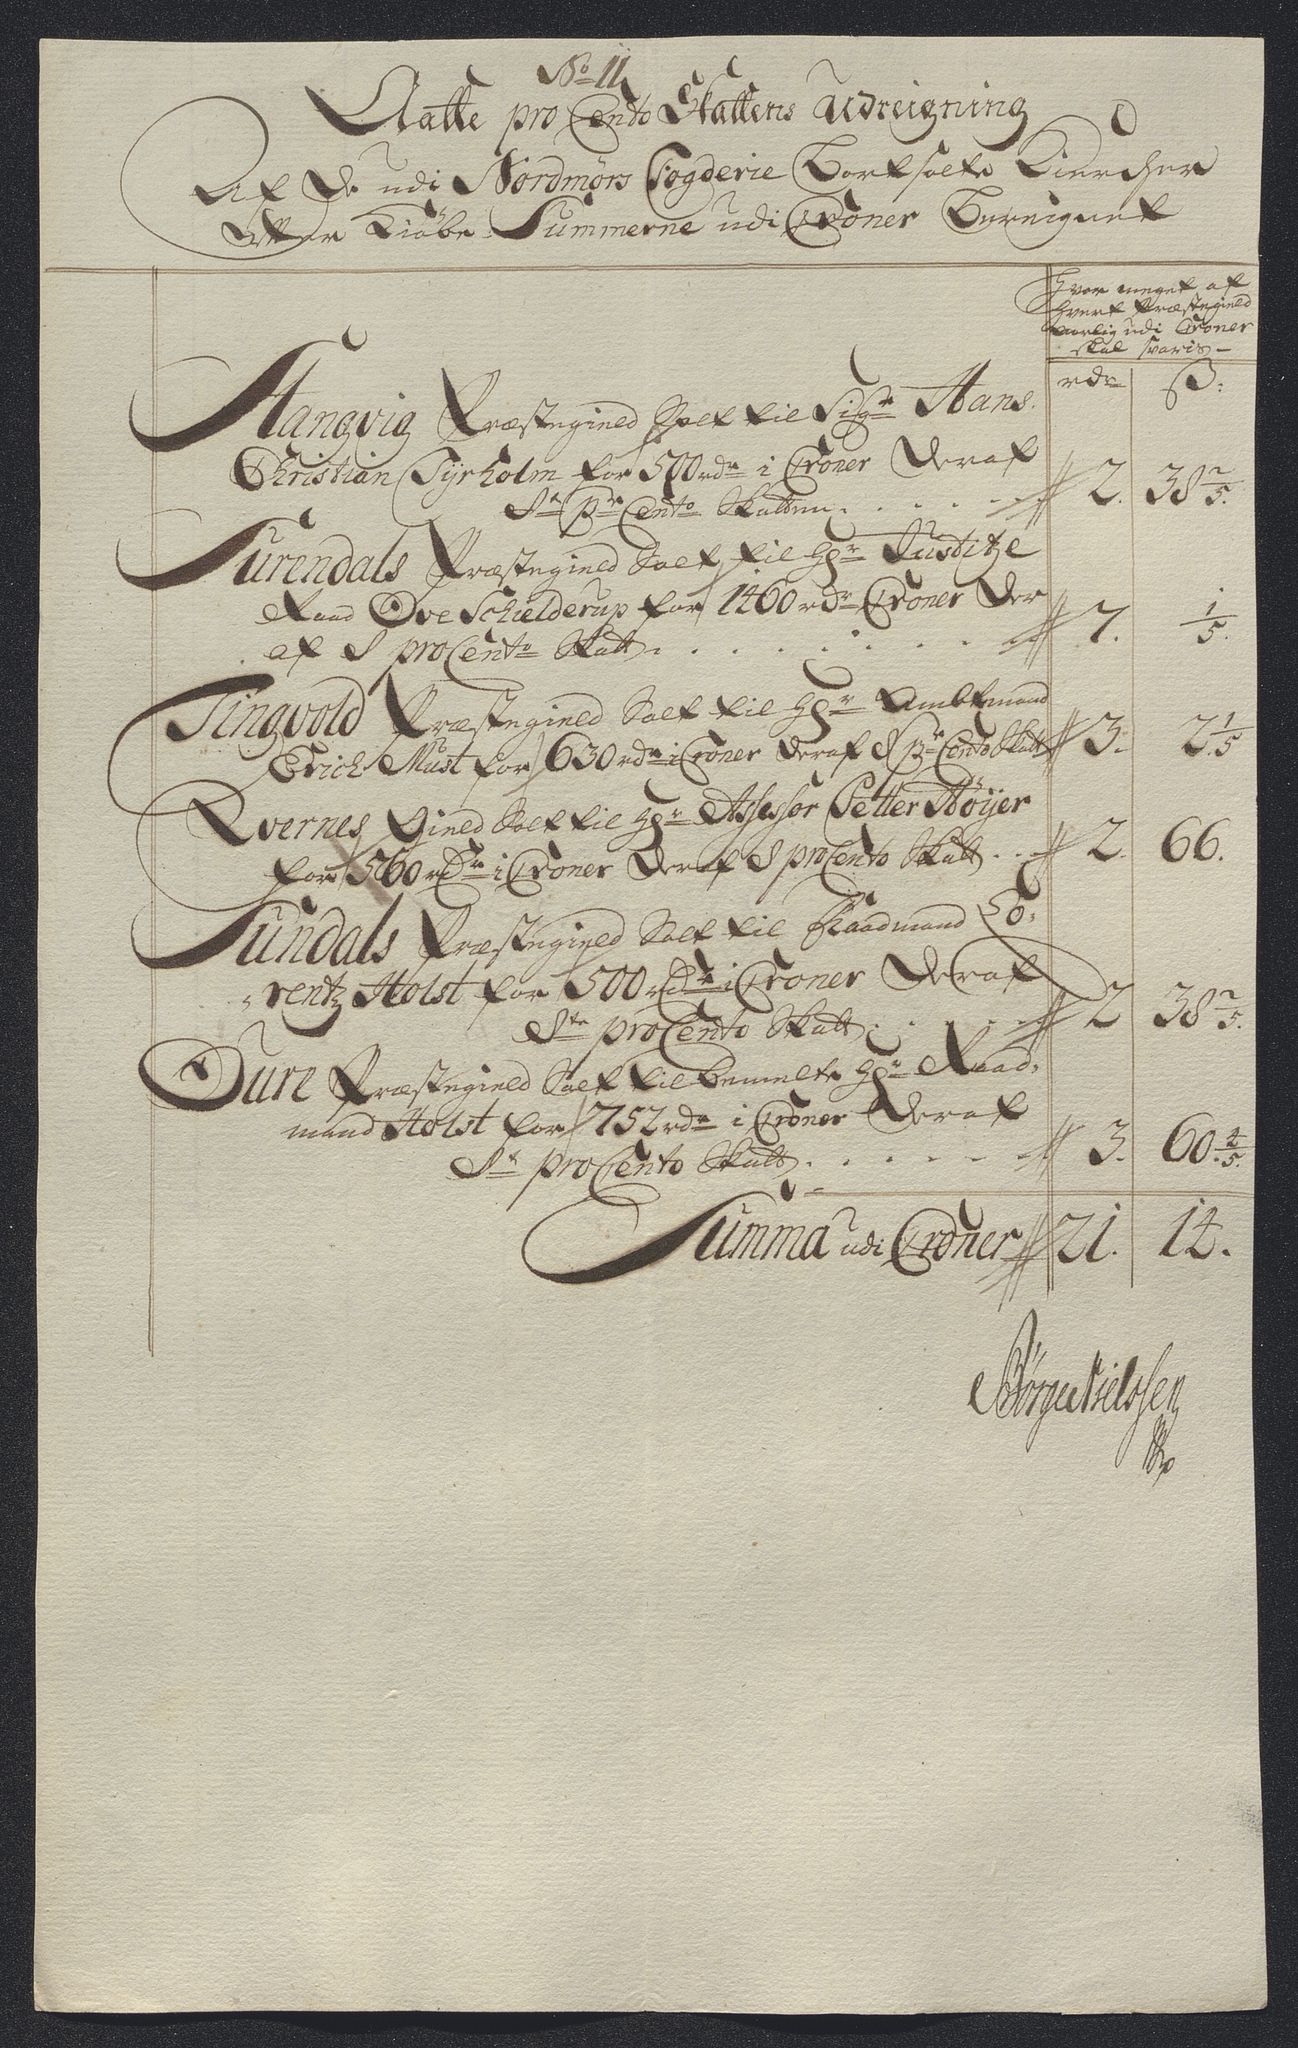 No 11
Aatte pro Cento Skattens Udreigning
Af De udi Nordmørs Fogderie Bortsolte Kiercher
Efter Kiøbe Summerne udi Croner Bereignet
Hvor meget af
hvert Præstegield
aarlig udi Croner
skal svaris
rdr ß:
Stangvig Præstegield Solt til Sigr Hans
Christian Tyrholm for 500 rdr i Croner Deraf
8te pr Cento Skatten . . . . . 2. 38 2/5.
Surendals Præstegield Solt til Hr Justitze
Raad Ove Schielderup for 1460 rdr Croner Der
af 8 pro Cento Skatt . . . . . . . 7. 1/5.
Tingvold Præstegield Solt til Hr Ambtmand
Erich Must for 630 rdr i Croner Deraf 8 pr Cento Skatt 3. 2 1/5
Qvernes Gield Solt til Hr Assessor Petter Høyer
for 560 rdr i Croner Deraf 8 pro Cento Skatt . . 2. 66.
Sundals Præstegield Solt til Raadmand Lo-
rentz Holst for 500 rdr i Croner Deraf
8te pro Cento Skatt . . . . . 2 38 2/5.
Ture Præstegield Solt til bemelte Hr Raad-
mand Holst for 752 rdr i Croner Deraf
8te pro Cento Skatt . . . . . . 3. 60 4/5.
Summa udi Croner 21. 14.
Børge Nielssen